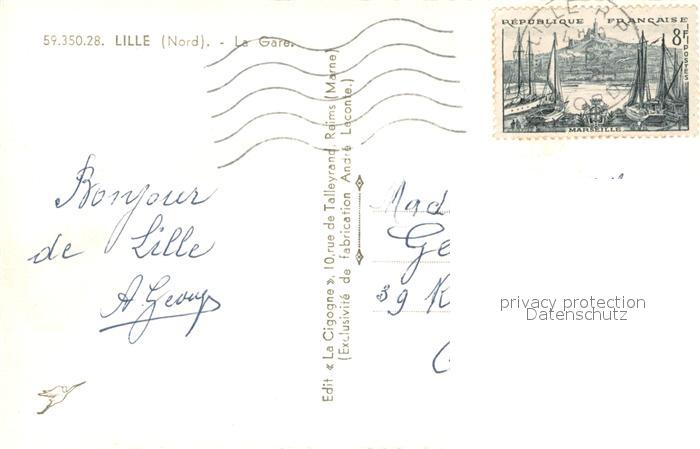 59.350.28. LILLE (Nord). - La Gare.
RÉPUBLIQUE FRANÇAISE
8F
POSTES
MARSEILLE
LILLE R.P.
Bonjour
de Lille
Edit « La Cigogne », 10, rue de Talleyrand, Reims (Marne)
(Exclusivité de fabrication André Leconte.)
Mad
Ge
39 K
privacy protection
Datenschutz